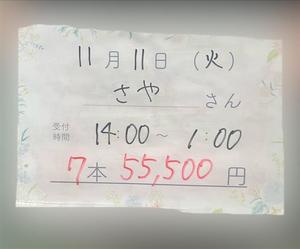 11月11日（火）
さや さん
受付時間 14:00～1:00
7本 55,500円